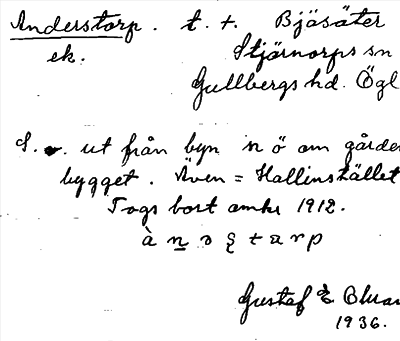 Anderstorp. t. t. Bjäsäter
ek. Stjärnorps sn
Gullbergs hd. Ögl
S. v. ut från byn n ö om gårde
bygget. Även = Hallinstället
Togs bort omkr 1912.
à n ə ş t a r p
Gustaf
1936.